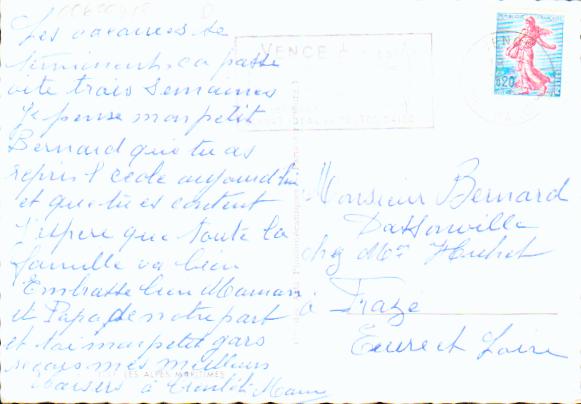 Les vacances se
terminent. ça passe
vite trois semaines
je pense mon petit
Bernard que tu as
repris l'ecole aujourd'hui
et que tu es content
J'espère que toute la
famille va bien
Embrasse bien Maman
et Papa de notre part
et toi mon petit gars
reçois mes meilleurs
Baisers à bientôt
LES ALPES MARITIMES
VENCE
0,20
Monsieur Bernard
Dassonville
chez Mr
à Frazé
Eure et Loire